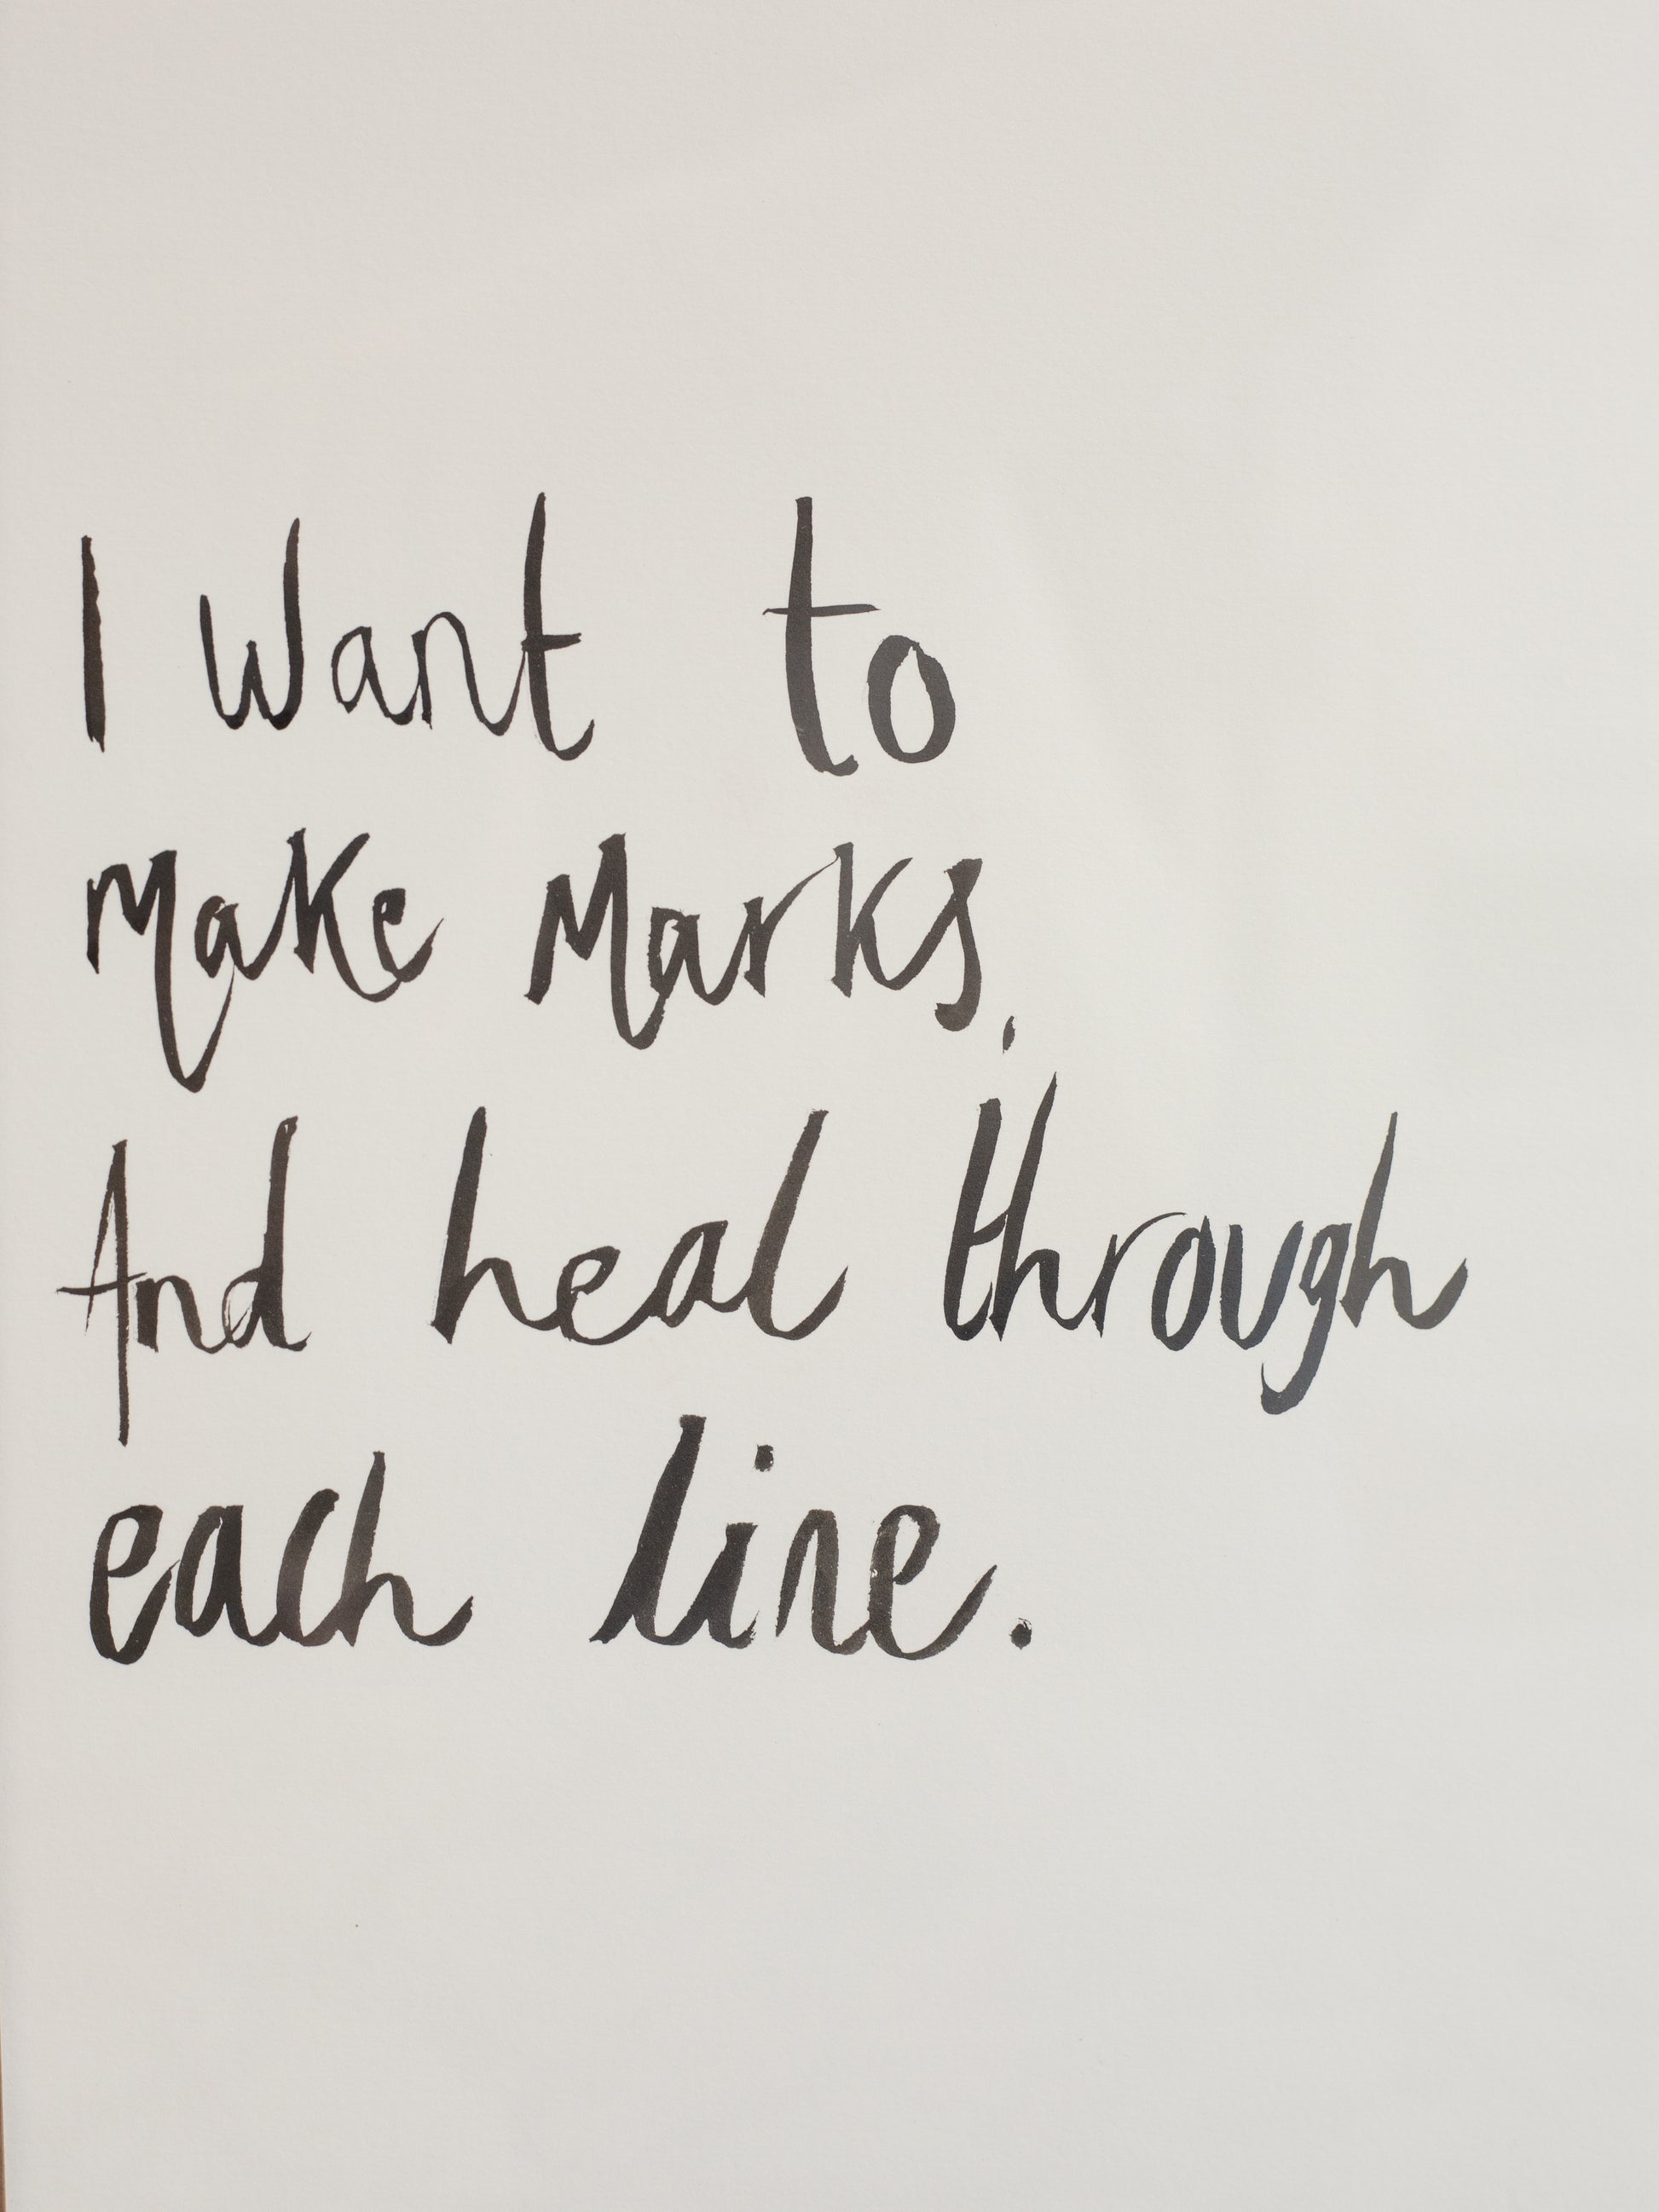 I Want to
Make Marks,
And heal through
each line.